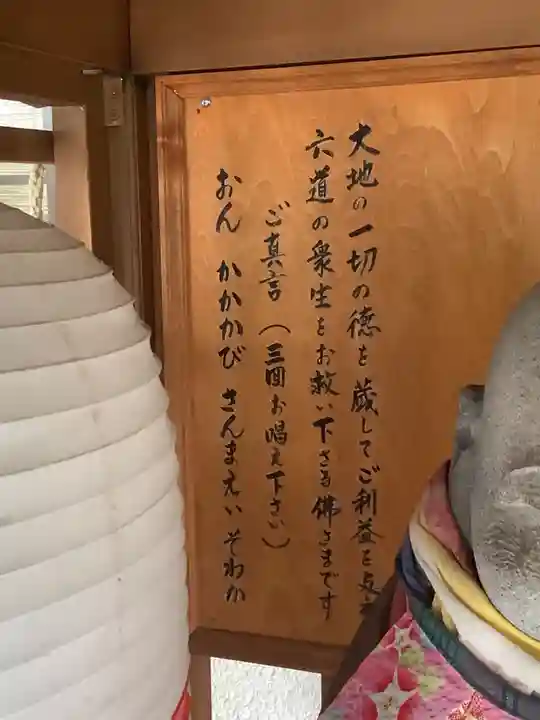 大地の一切の徳を蔵してご利益を与え
六道の衆生をお救い下さる佛さまです
ご真言（三回お唱え下さい）
おん かかかび さんまえい そわか